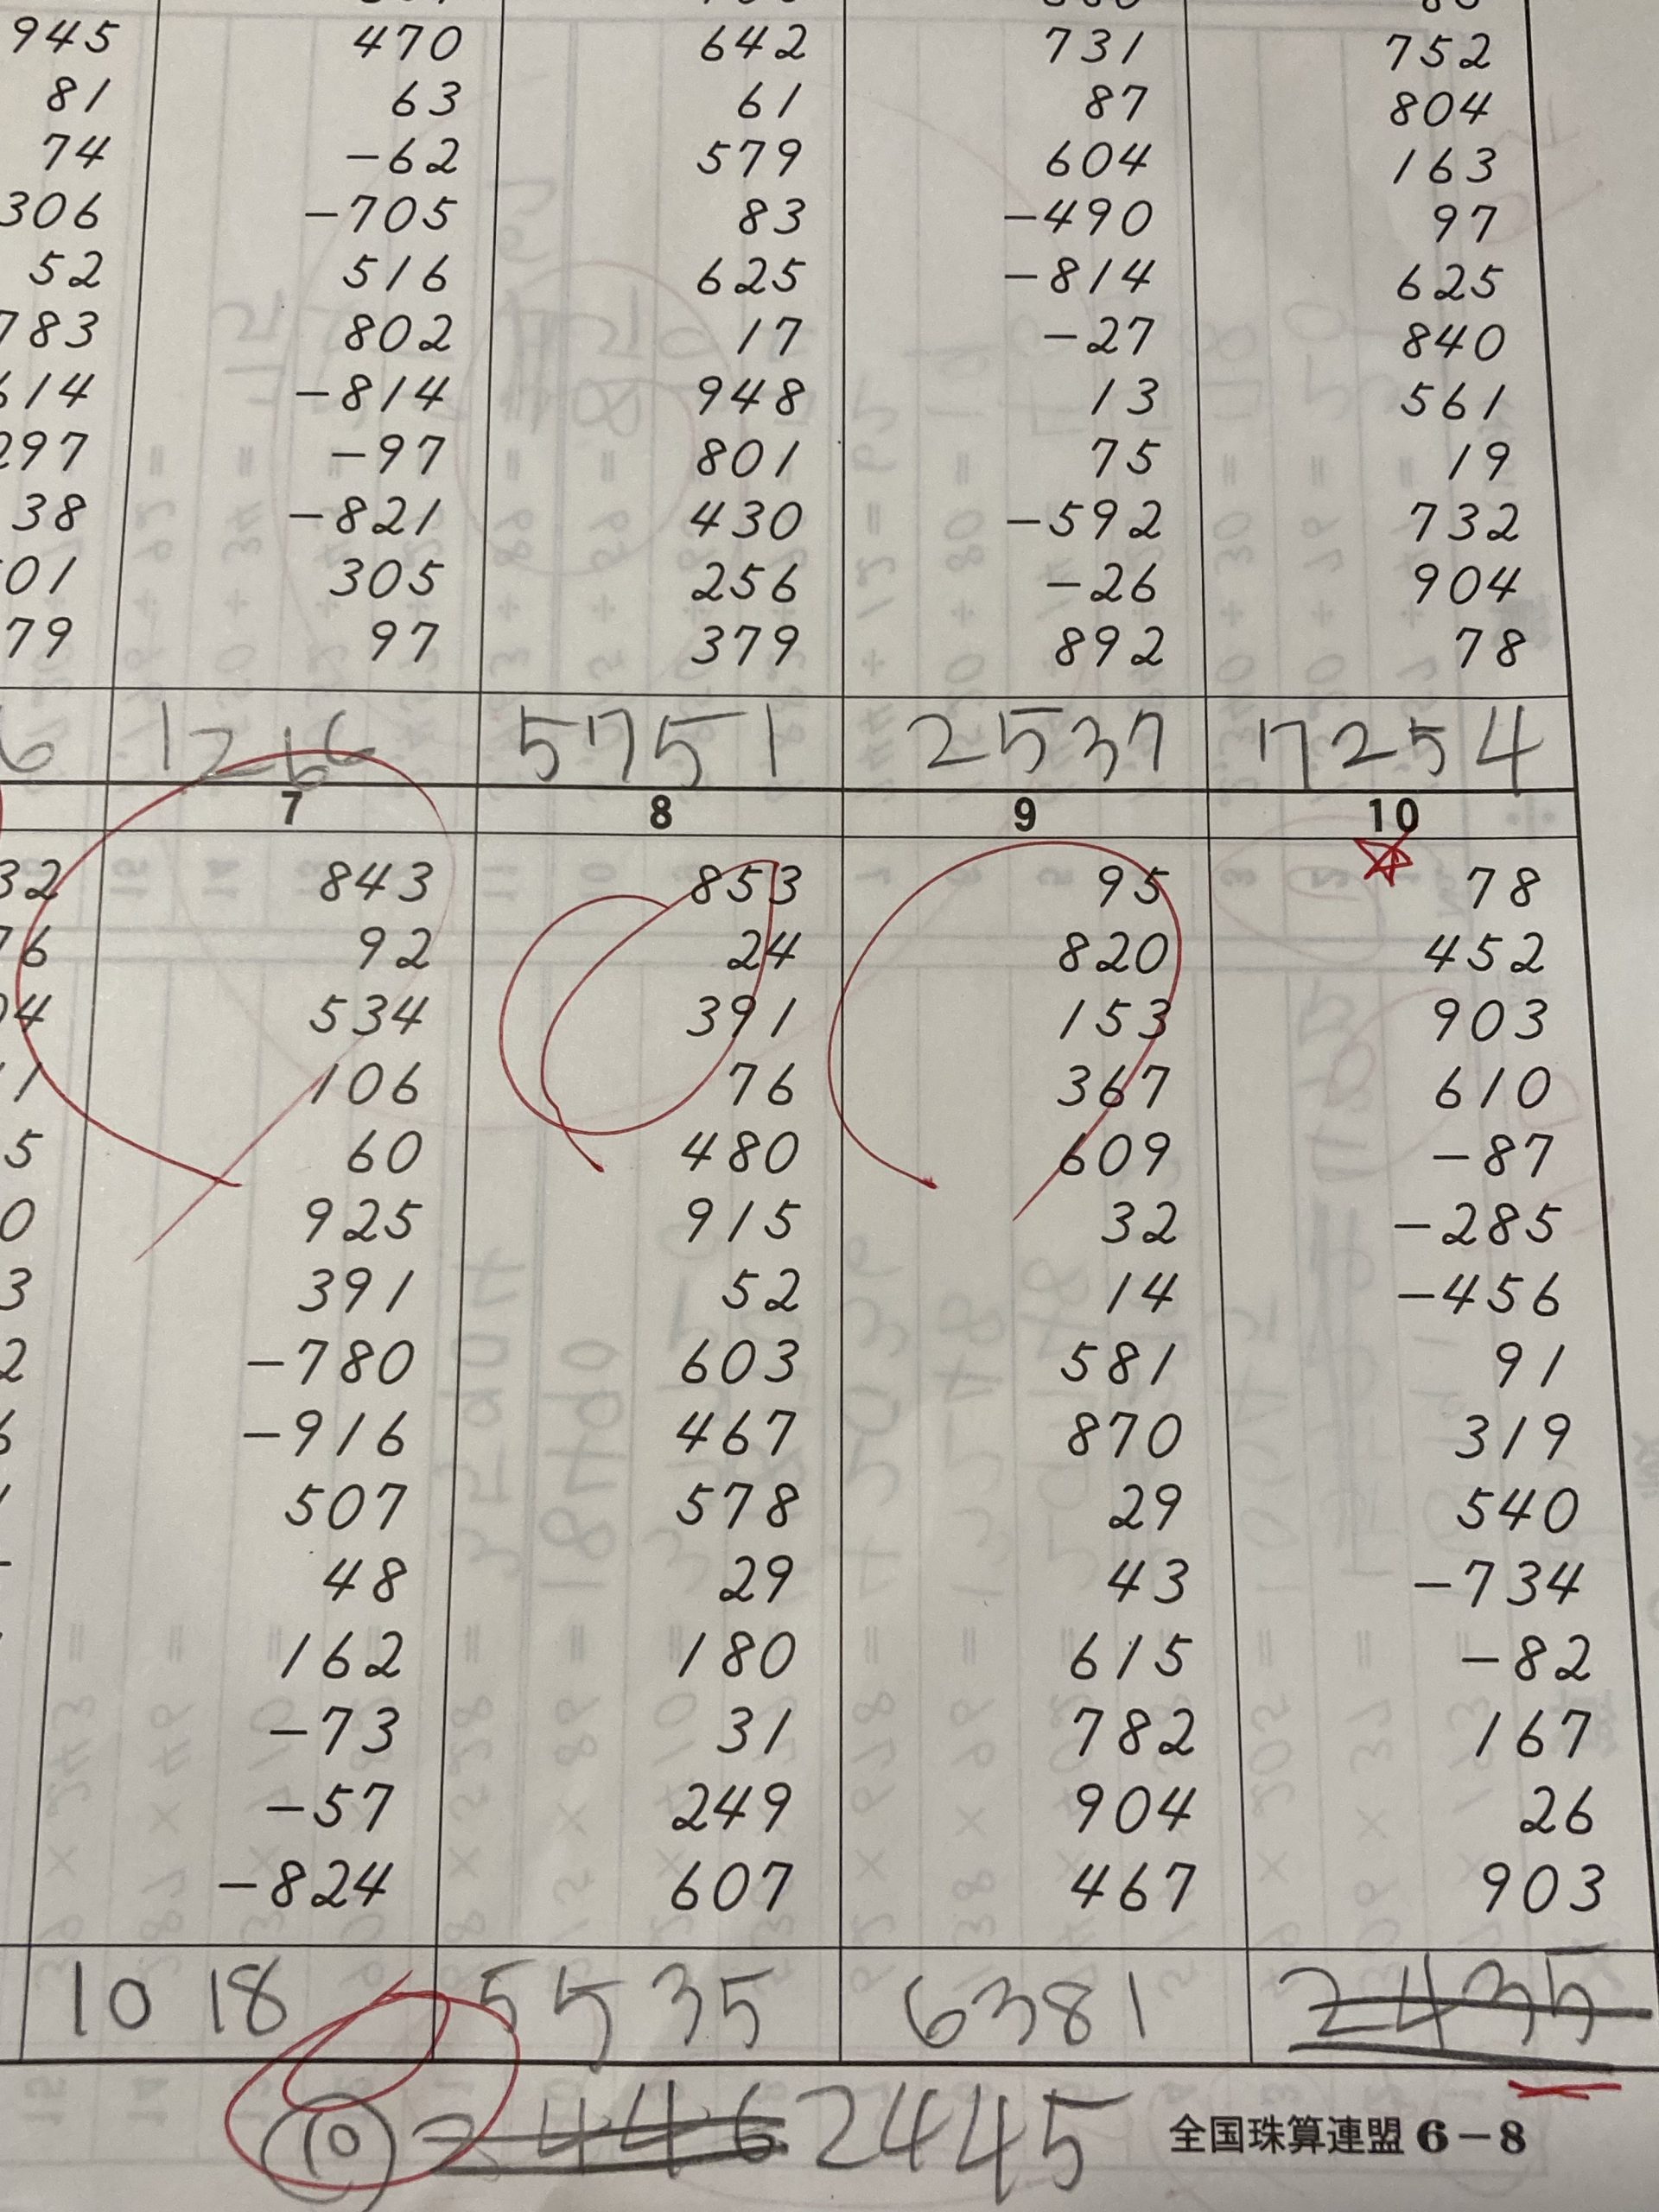 945 470 642 731 752
81 63 61 87 804
74 -62 579 604 163
306 -705 83 -490 97
52 516 625 -814 625
783 802 17 -27 840
614 -814 948 13 561
297 -97 801 75 19
38 -821 430 -592 732
01 305 256 -26 904
79 97 379 892 78
6 1266 5751 2537 7254
7 8 9 10
32 843 853 95 78
76 92 24 820 452
04 534 391 153 903
1 106 76 367 610
5 60 480 609 -87
0 925 915 32 -285
3 391 52 14 -456
2 -780 603 581 91
6 -916 467 870 319
507 578 29 540
48 29 43 -734
162 180 615 -82
-73 31 782 167
-57 249 904 26
-824 607 467 903
1018 5535 6381 2435
10 2446 2445 全国珠算連盟 6-8